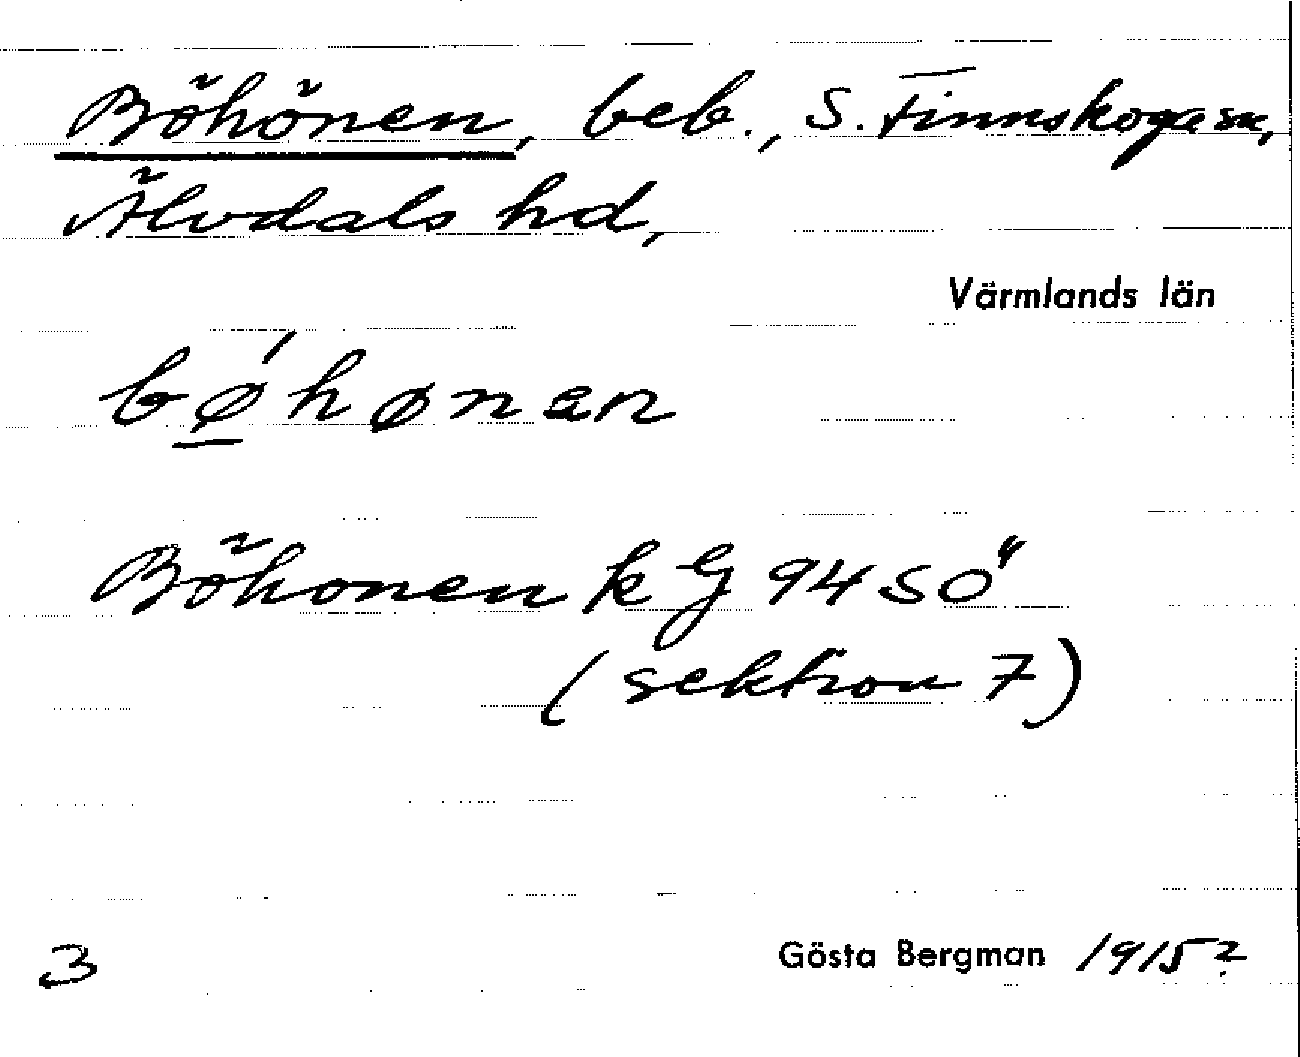 Böhönen, beb., S. Finnskoga sn,
Älvdals hd,
Värmlands län
bǿhønən
Böhonen k G 94 SÖ
(sektion 7)
3
Gösta Bergman 1915?